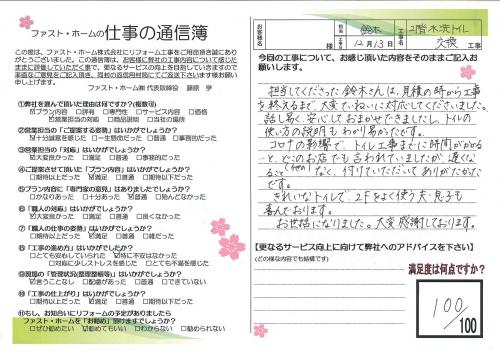 ファスト・ホームの仕事の通信簿
この度は、ファスト・ホーム株式会社にリフォーム工事をご用命頂き誠にあり
がとうございました。この通信簿は、お客様に弊社の工事内容について感じた
ままに評価していただく事で、更なるサービスの向上を目指していきますので
率直なご意見をご記入頂き、同封の返信用封筒にてご返送下さいます様お願い
申し上げます。
ファスト・ホーム㈱ 代表取締役 藤原 学
①弊社を選んで頂いた理由は何ですか?(複数可)
プラン内容 □評判 □専門性 □サービス □価格
営業担当の対応 □商品説明 □当社の場所
②営業担当の「ご提案する姿勢」はいかがでしょうか?
十分誠意を感じた □一生懸命だった □普通 □事務的だった
③営業担当の「対応」はいかがでしょうか?
大変良かった □満足 □普通 □事務的だった
④ご提案させて頂いた「プラン内容」はいかがでしょうか?
□期待以上 満足 □普通 □期待以下だった
⑤プラン内容に「専門家の意見」はありましたか?
□かなりあった 十分あった □普通 □あまりなかった
⑥「職人の対応」はいかがでしょうか?
大変良かった □満足 □普通 □良くなかった
⑦「職人の仕事の姿勢」はいかがでしょうか?
□期待以上 満足 □普通 □雑だった
⑧「工事の進め方」はいかがでしたか?
□とても安心していられた 特に不安はなかった
□対応に少しストレスを感じた □とても不満を感じた
⑨現場の「管理状況(整理整頓等)」はいかがでしょうか?
言うことなし □配慮があった □普通 □雑だった
⑩「工事の仕上がり」はいかがでしょうか?
□期待以上 満足 □普通 □期待以下だった
⑪もし、お知合いにリフォームの予定がありましたら
ファスト・ホームを「お勧め」頂けますでしょうか?
□ぜひ勧めたい 勧めてもいい □わからない □勧められない
お客様名 様
担当 鈴木
工事 2階水洗トイレ
交換 工事
12月13日
今回の工事について、お感じ頂いた内容をそのままご記入
お願いします。
担当してくださった鈴木さんは、見積の時から工事
を終えるまで、大変ていねいに対応してくださいました。
話し易く、安心しておまかせできましたし、トイレの
使い方の説明もわかり易かったです。
コロナの影響で、トイレ工事までに時間がかかる
と、どこのお店でも言われていましたが、遅くな
ることなく、付けていただいてありがたかった
です。
きれいなトイレで、2Fをよく使う夫・息子も
喜んでおります。
お世話になりました。大変感謝しております。
【更なるサービス向上に向けて弊社へのアドバイスを下さい】
(どの様な内容でも結構です)
満足度は何点ですか?
100/100